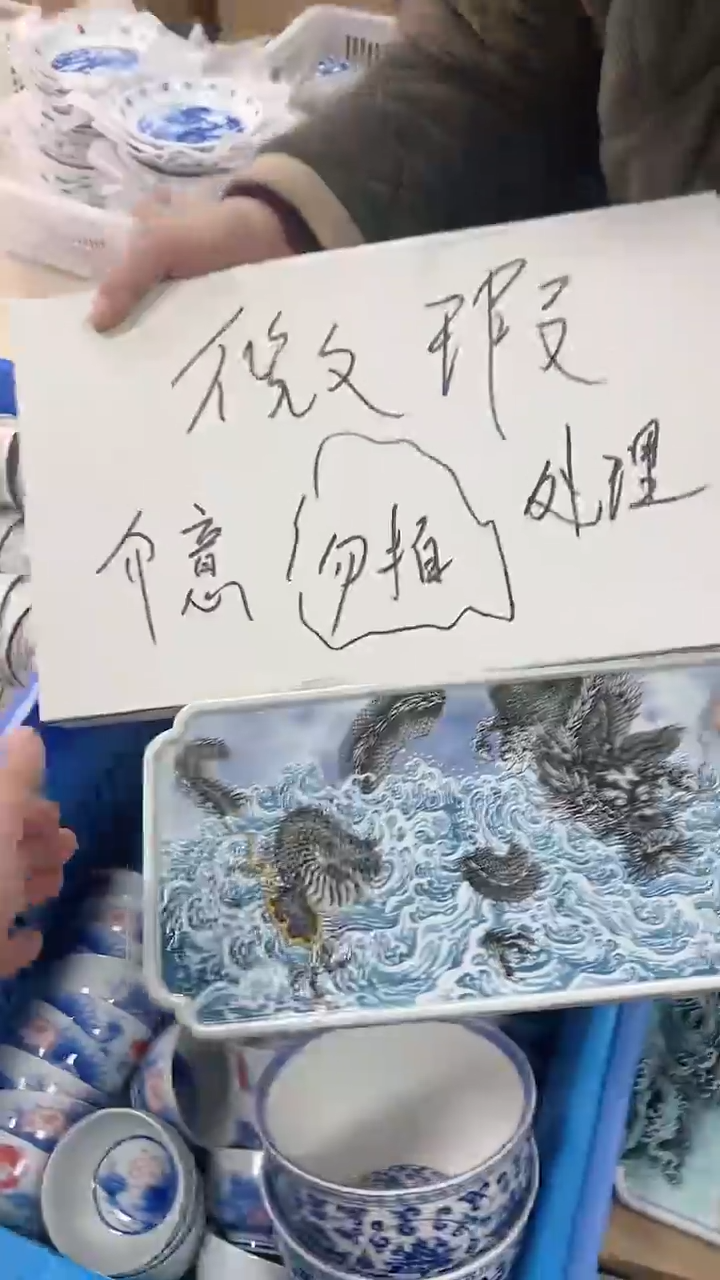 微瑕
介意勿拍 处理